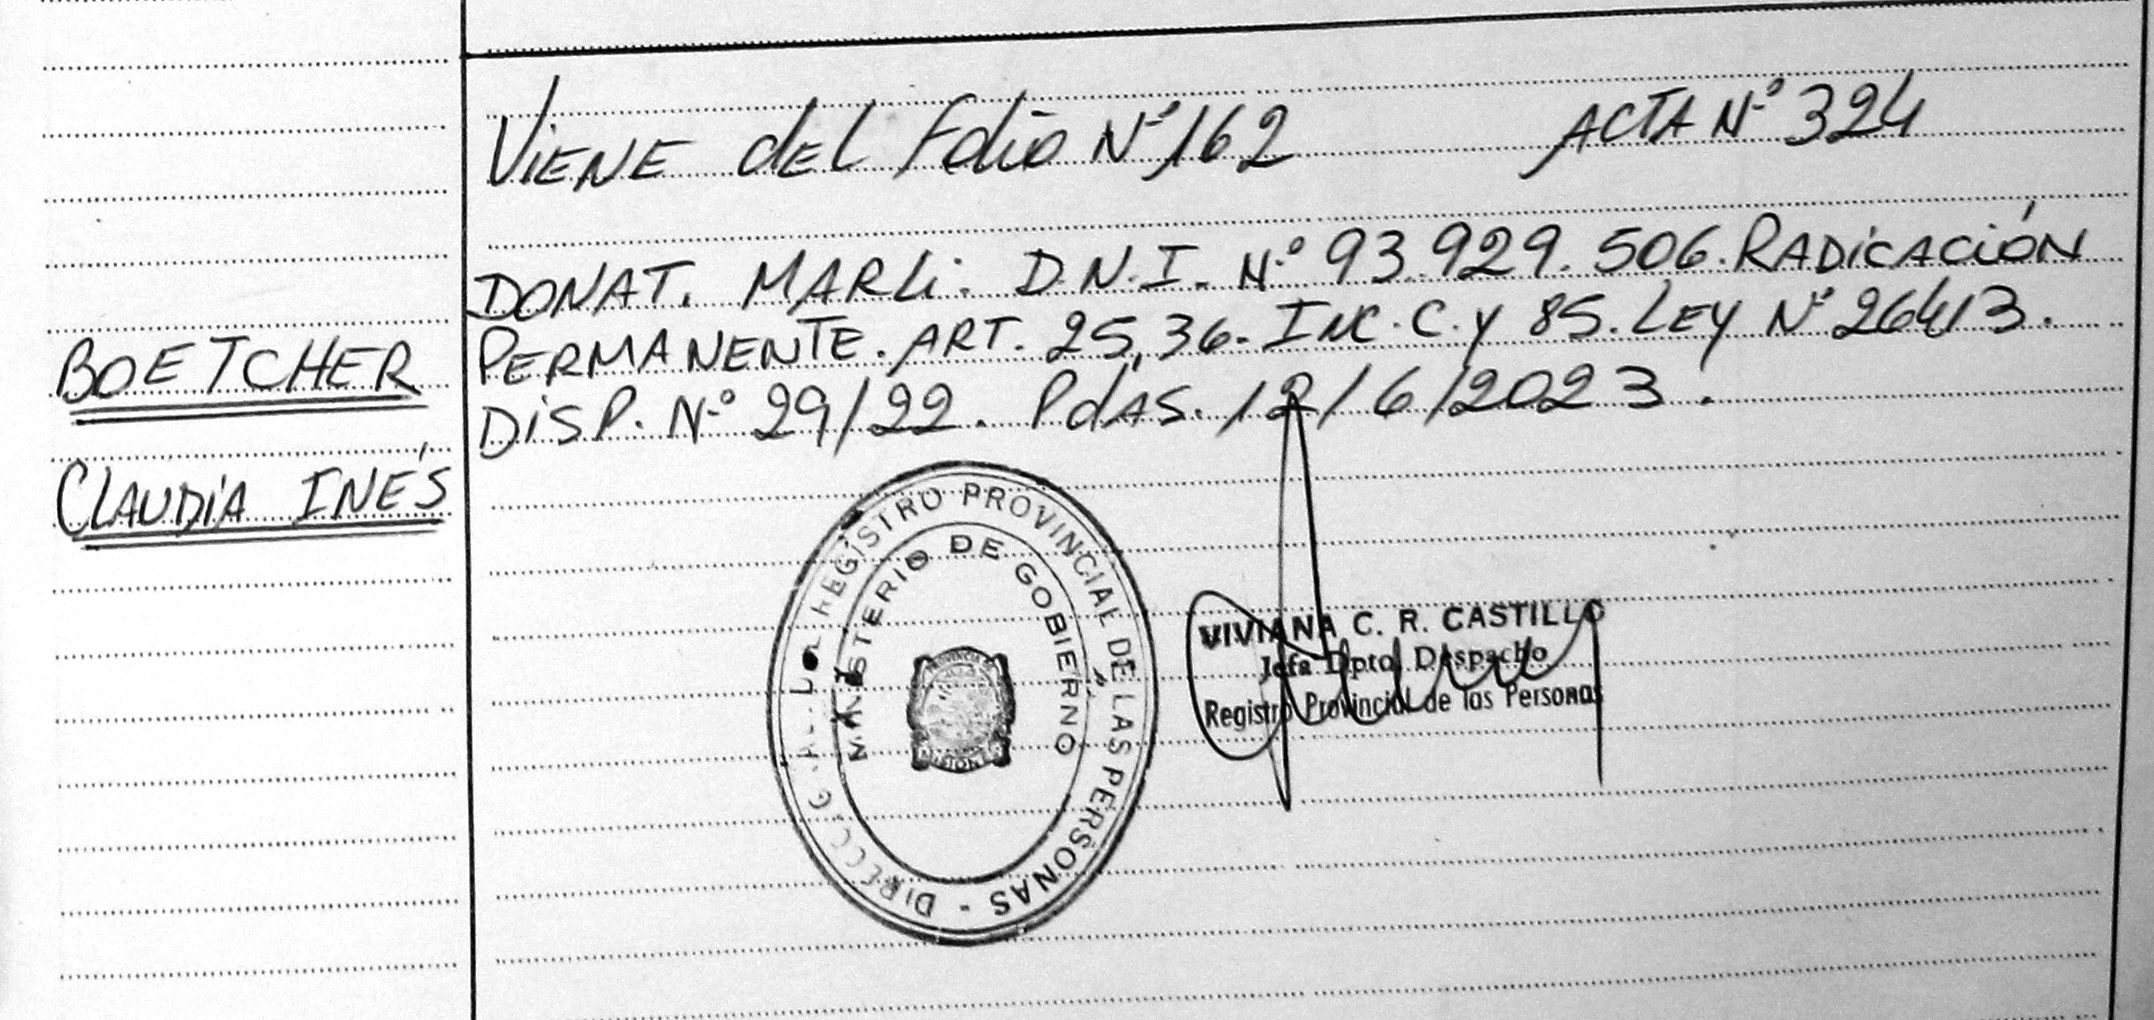 Viene del Folio Nº 162 ACTA Nº 324
BOETCHER
CLAUDIA INÉS
DONAT. MARLi. D.N.I. Nº 93.929.506. RADICACIÓN
PERMANENTE. ART. 25, 36. INC. C. y 85. LEY Nº 26413.
DISP. Nº 29/22. PdAS. 12/6/2023.
REGISTRO PROVINCIAL DE LAS PERSONAS -
MINISTERIO DE GOBIERNO
VIVIANA C. R. CASTILLO
Jefa Dpto. Despacho
Registro Provincial de las Personas